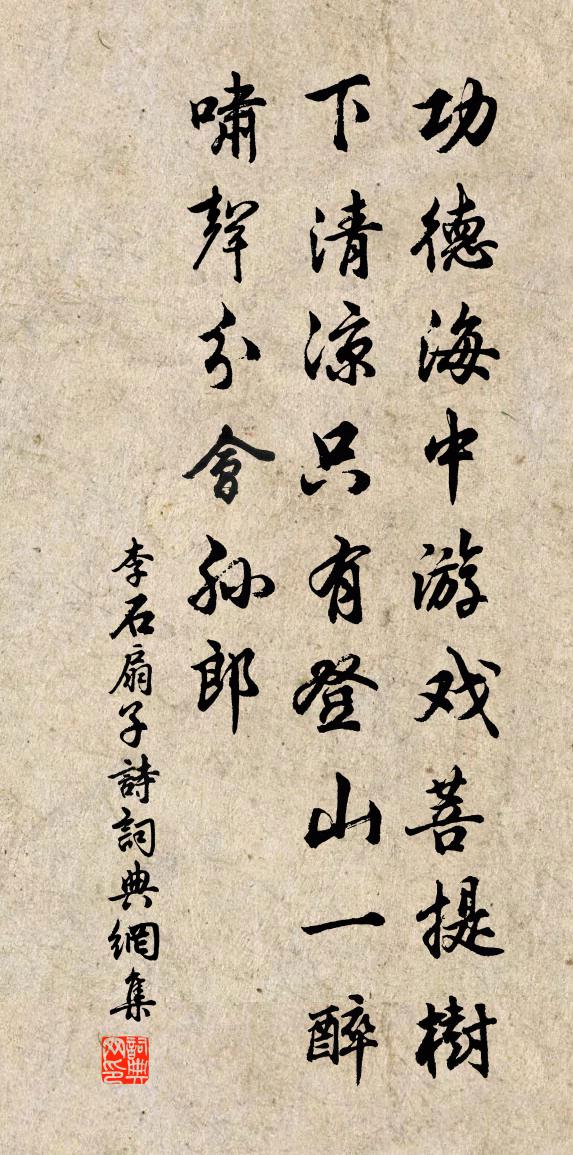 功德海中游戏菩提樹
下清凉只有登山一醉
嘯聲分會孙郎
李石扇子詩詞典網集
詞典网印